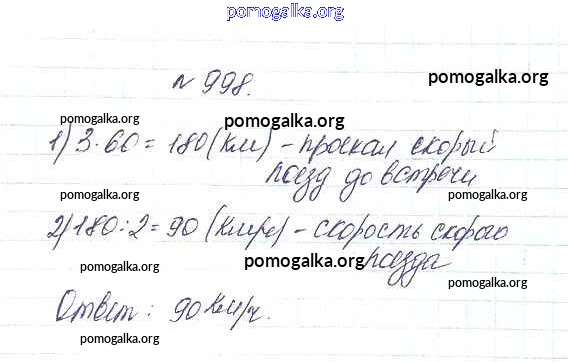 pomogalka.org
№ 998.
pomogalka.org
pomogalka.org pomogalka.org
1) 3·60=180(км) - проехал скорый
поезд до встречи
pomogalka.org pomogalka.org
2) 180:2=90 (км/ч) - скорость скорого
поезда
pomogalka.org pomogalka.org pomogalka.org
Ответ: 90км/ч.
pomogalka.org
pomogalka.org